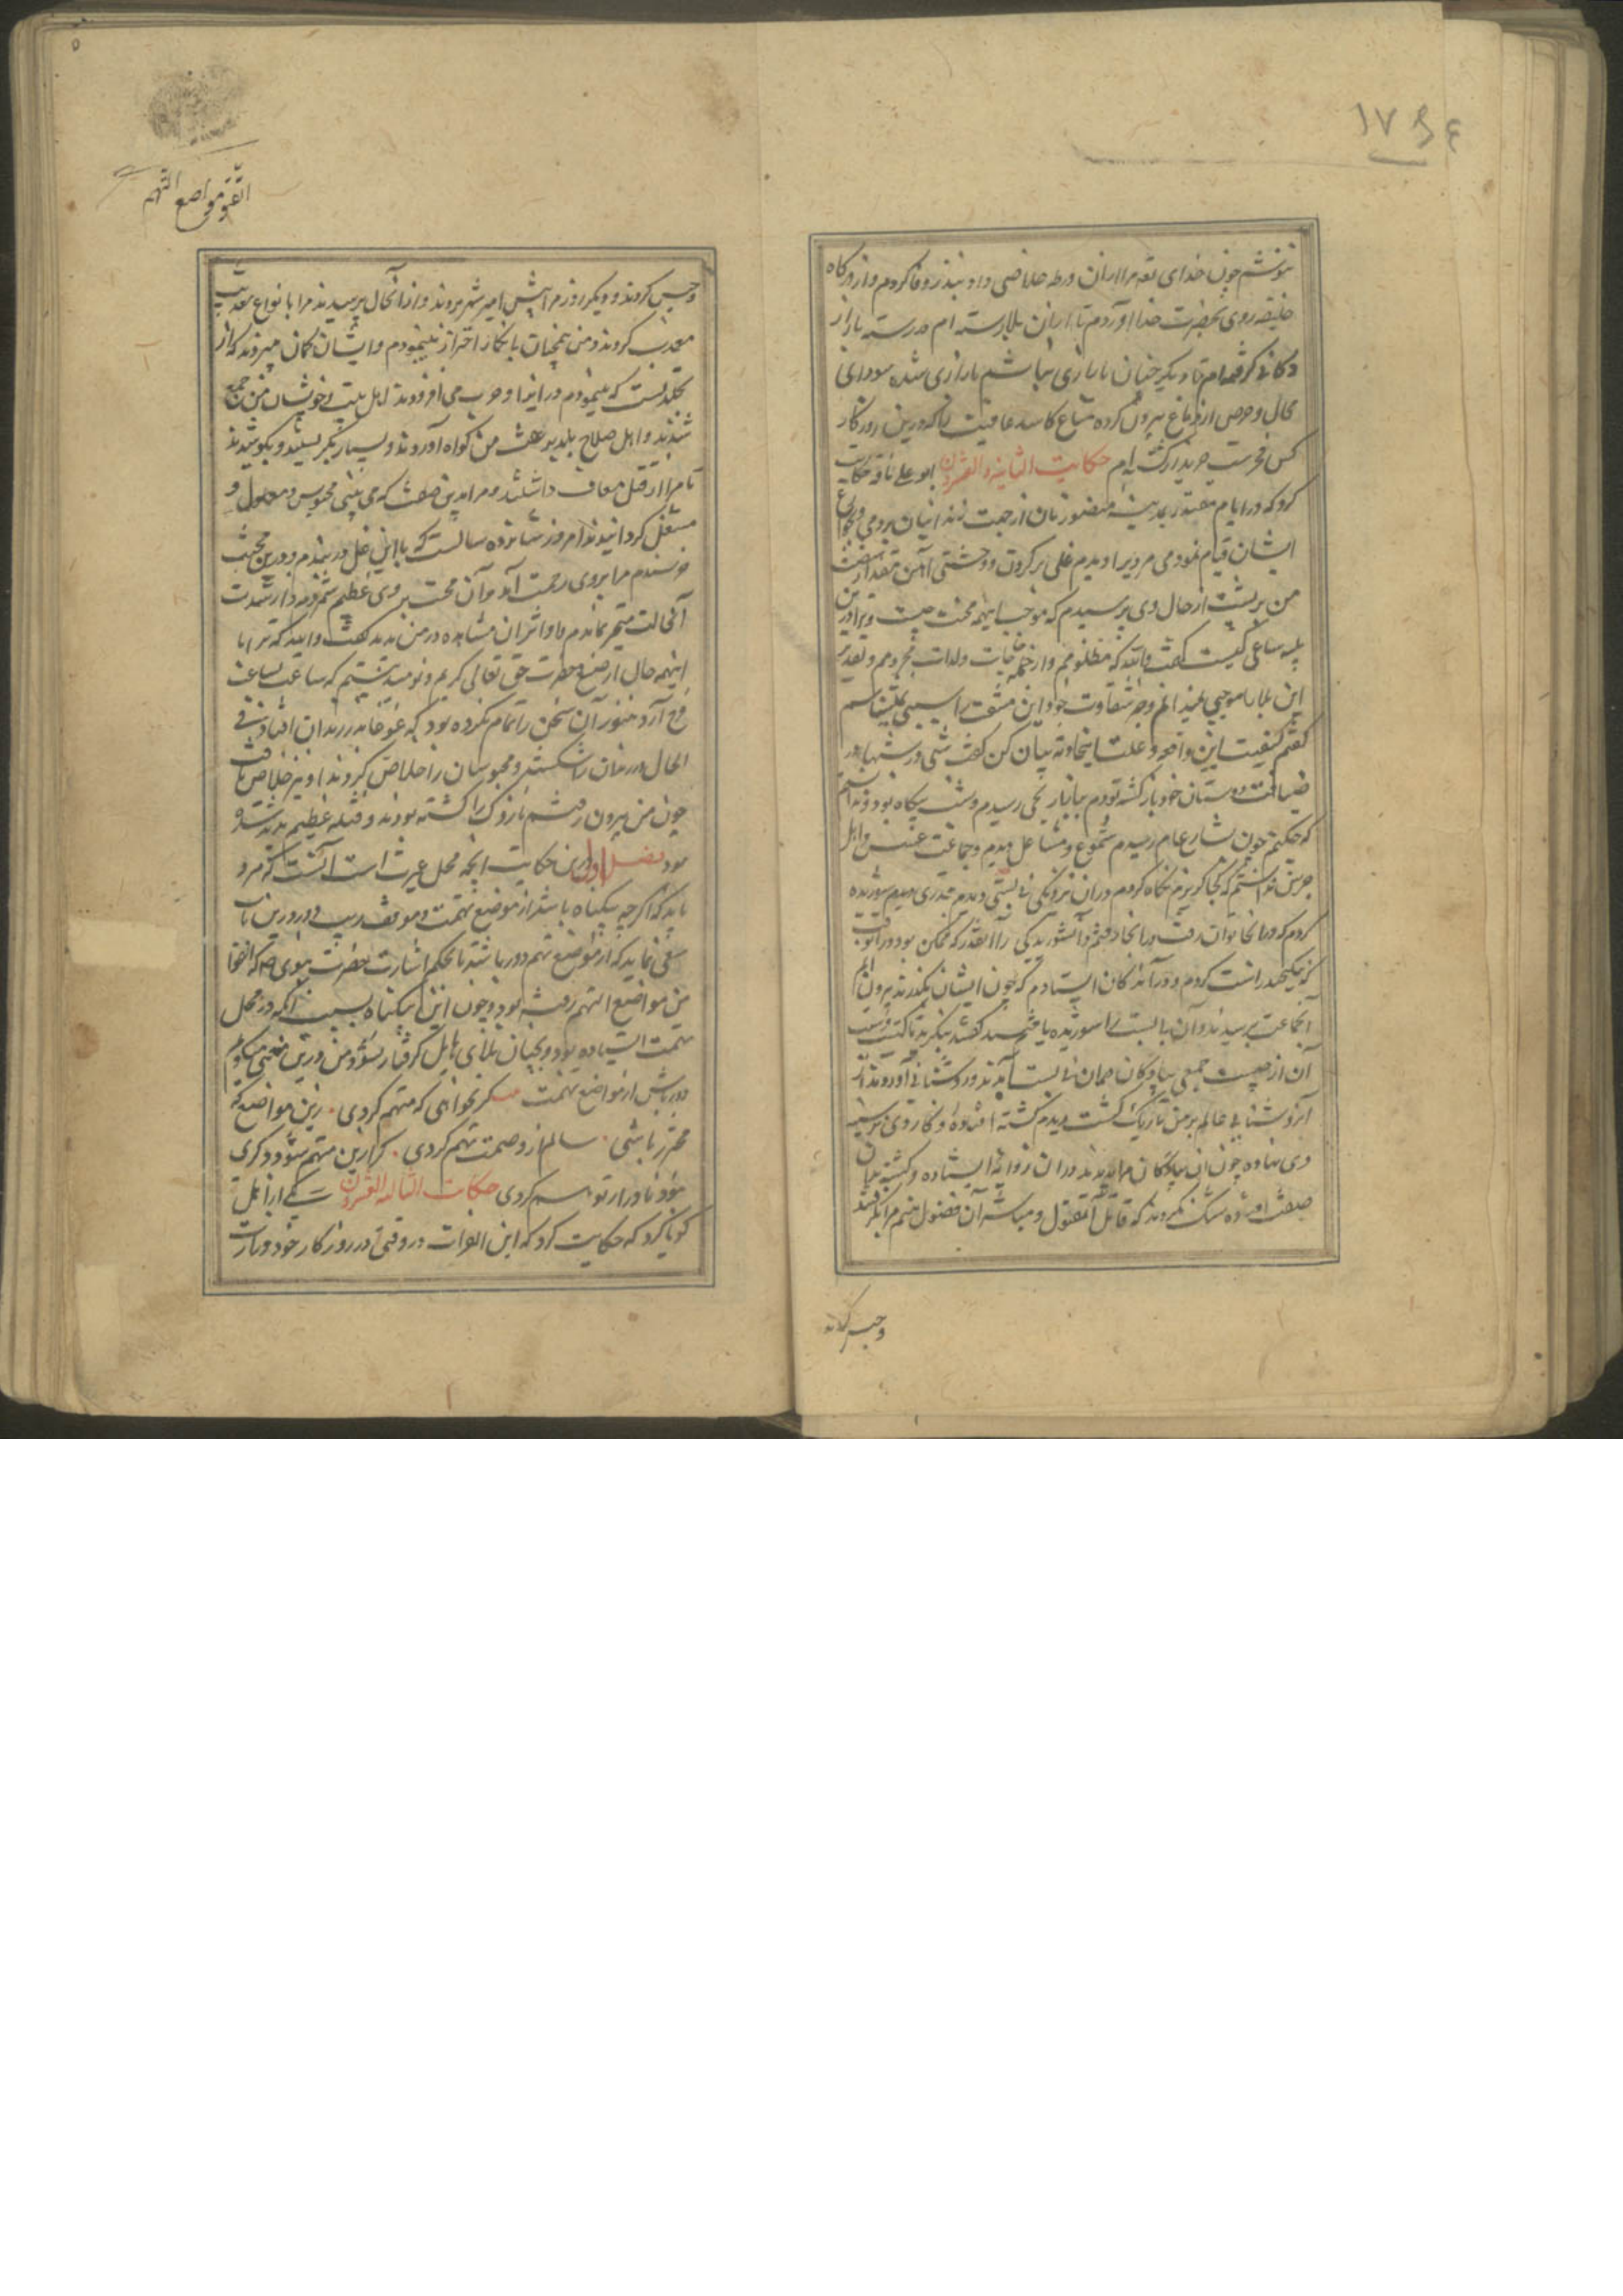 ١٧
نفروشم چون خدای تعالی مرا ازان ورطه خلاصی داد و بنذر وفا کردم و از درگاه
خلیفه روی بحضرت خدا آوردم تا ازان بلا رسته ام در رسته بازار
دکانی گرفته ام تا دیگر چنان بازاری نباشم بازاری شده سودای
محال و حرص از دماغ بیرون کرده متاع کاسد عافیت را که درین روزگار
کس نخرست خریدار گشته ام حکایت الثانیه و العشرون ابو علی ناقد حکایت
کرد که در ایام مقتدر بمدینه منصور زنان از جهت زندانیان بردمی و بحوایج
ایشان قیام نمودمی مردی را دیدم غلی بر گردن و خشتی آهن مقدار شصت
من بر پشت از حال وی پرسیدم که موجب اینهمه محنت چیست و ترا درین
ساعی کیست گفت والله که مظلومم و از جمله حاجات ولذات محرومم و تقدیر
این بلا را موجبی نمیدانم و جز شقاوت خود این مشقت را سببی نمیشناسم
گفتم کیفیت این واقعه و علت این حادثه بیان کن گفت شبی در شبها از
ضیافت دوستان خود بازگشته بودم ببازار یحیی رسیدم و شب بیگاه بود و ندانستم
که چکنم چون بشارع عام رسیدم شموع و مشاعل دیدم و جماعت عسس و اهل
حرس ندانستم که کجا گریزم نگاه کردم دران نزدیکی نی بستی دیدم قدری سوریده
کردم که در انجا توان رفت و در انجا رفتم و آن شوریدگی را آنقدر که ممکن بود
راست کردم و در آن دکان ایستادم که چون ایشان بگذرند بیرون آیم
آنجماعت برسیدند و آن نی بست را شوریده یافتند گفتند بنگرید تا
آن از چیست جمعی پیادگان دران نی بست آمدند و روشنایی آوردند از
آن روشنایی عالم بر من تاریک گشت دیدم کشته افتاده و کاردی بر سینه
وی نهاده چون آن پیادگان مرا دیدند دران زوایه ایستاده و کشته بدان
صفت افتاده شک نکردند که قاتل آن مقتول و مباشر آن فضول منم مرا بگرفتند
وحبس کردند
اتقو مواضع التهم
وحبس کردند و دیگر روز مرا پیش امیر شهر بردند و از آنحال پرسیدند مرا بانواع تعذیب
معذب کردند و من همچنان بانکار احتراز مینمودم و ایشان گمان میبردند که از
تجلدست که مینمودم در ایذا و ضرب می افزودند اهل بیت و خویشان من جمع
شدند و اهل صلاح بلد بر عفت من گواه آوردند و بسیار بگریستند و بکوشیدند
تا مرا از قتل معاف داشتند و مرا بدین صفت که می بینی محبوس و مغلول و
مثقل گردانیدند امروز شانزده سالست که با این غل در بندم و درین محنت
خرسندم مرا بروی رحمت آمد و آن محنت بر وی عظیم شمردم و از شدت
آنحالت متحیر بماندم و اثر آن مشاهده در من بدید گفت والله که ترا با
اینهمه حال از صنع حضرت حق تعالی کریم نومید نیستم که ساعت بساعت
فرج آرد هنوز آن سخن را تمام نکرده بود که غوغا در زندان افتاد و فی
الحال در زندان را شکستند و محبوسان را خلاص کردند او نیز خلاص یافت
چون من بیرون رفتم نازوک را کشته بودند و فتنه عظیم پدید شده
بود فصل اول درین حکایت آنچه محل عبرت است آنست که مرد
باید که اگر چه بیگناه باشد از موضع تهمت و موقف ریب دور و درین باب
سعی نماید که از مواضع تهم دور باشد تا بحکم اشارت حضرت نبوی ص که اتقوا
من مواضع التهم رفته بود و چون این بیگناه بسبب آنکه در محل
تهمت ایستاده بود و بچنان بلای هایل گرفتار شود و من درین معنی میگویم
دور باش از مواضع تهمت گر نخواهی که متهم گردی زین مواضع که
محترز باشی سالم از وصمت تهم گردی گر ازین متهم شود دگری
حکایت الثالثه و العشرون یکی از اهل
کونیا کرد که حکایت کرد که ابن الفرات در وقتی در روزگار خود وزارت